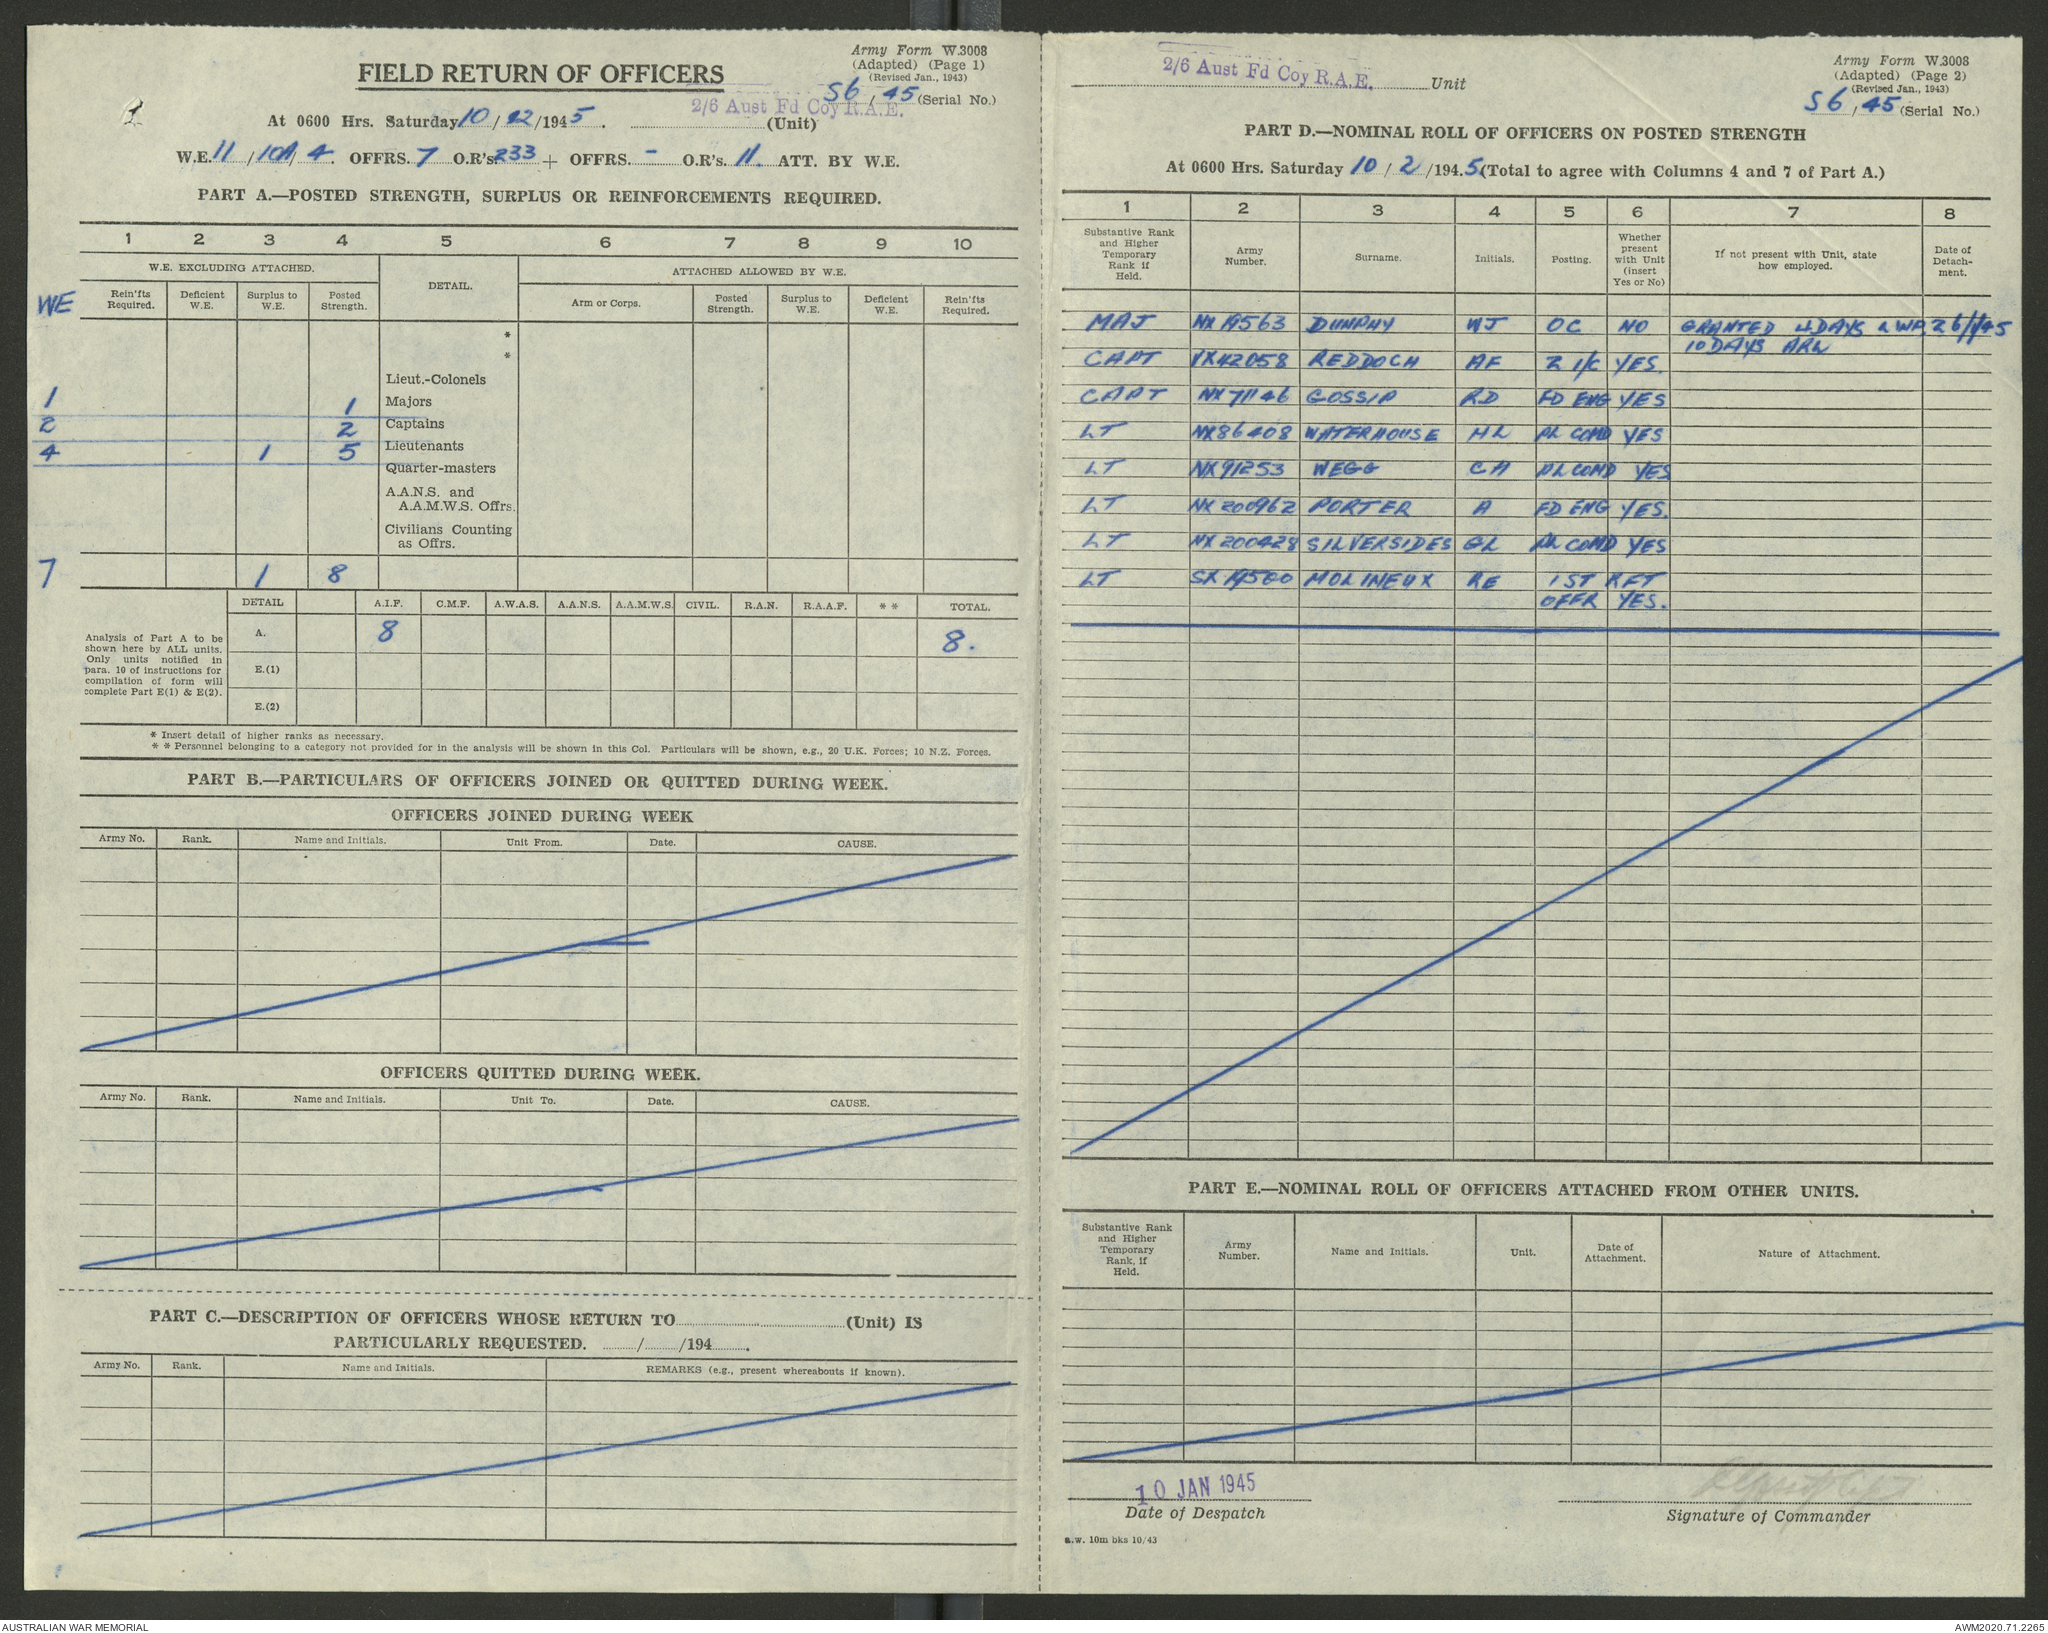 Army Form W.3008
(Adapted) (Page 1)
(Revised Jan., 1943)
FIELD RETURN OF OFFICERS
S6/45 (Serial No.)
2/6 Aust Fd Coy R.A.E.
At 0600 Hrs. Saturday 10/2/1945. (Unit)
W.E. 11/109/4. OFFRS. 7 O.R's. 233 + OFFRS. - O.R's. 11. ATT. BY W.E.
PART A.—POSTED STRENGTH, SURPLUS OR REINFORCEMENTS REQUIRED.
1 2 3 4 5 6 7 8 9 10
W.E. EXCLUDING ATTACHED. DETAIL. ATTACHED ALLOWED BY W.E.
WE Rein'fts Required. Deficient W.E. Surplus to W.E. Posted Strength. Arm or Corps. Posted Strength. Surplus to W.E. Deficient W.E. Rein'fts Required.
*
*
Lieut.-Colonels
1 1 Majors
2 2 Captains
4 1 5 Lieutenants
Quarter-masters
A.A.N.S. and
A.A.M.W.S. Offrs.
Civilians Counting
as Offrs.
7 1 8
DETAIL A.I.F. C.M.F. A.W.A.S. A.A.N.S. A.A.M.W.S. CIVIL. R.A.N. R.A.A.F. ** TOTAL.
Analysis of Part A to be
shown here by ALL units.
Only units notified in
para. 10 of instructions for
compilation of form will
complete Part E(1) & E(2).
A. 8 8.
E.(1)
E.(2)
* Insert detail of higher ranks as necessary.
* * Personnel belonging to a category not provided for in the analysis will be shown in this Col. Particulars will be shown, e.g., 20 U.K. Forces; 10 N.Z. Forces.
PART B.—PARTICULARS OF OFFICERS JOINED OR QUITTED DURING WEEK.
OFFICERS JOINED DURING WEEK
Army No. Rank. Name and Initials. Unit From. Date. CAUSE.
OFFICERS QUITTED DURING WEEK.
Army No. Rank. Name and Initials. Unit To. Date. CAUSE.
PART C.—DESCRIPTION OF OFFICERS WHOSE RETURN TO (Unit) IS
PARTICULARLY REQUESTED. / /194 .
Army No. Rank. Name and Initials. REMARKS (e.g., present whereabouts if known).
2/6 Aust Fd Coy R.A.E. Unit
Army Form W.3008
(Adapted) (Page 2)
(Revised Jan., 1943)
S6/45 (Serial No.)
PART D.—NOMINAL ROLL OF OFFICERS ON POSTED STRENGTH
At 0600 Hrs. Saturday 10/2/1945. (Total to agree with Columns 4 and 7 of Part A.)
1 2 3 4 5 6 7 8
Substantive Rank and Higher Temporary Rank if Held. Army Number. Surname. Initials. Posting. Whether present with Unit (insert Yes or No) If not present with Unit, state how employed. Date of Detach-ment.
MAJ NX19563 DUNPHY WJ OC NO GRANTED 4DAYS LWP, 26/1/45
10 DAYS ARL
CAPT VX42058 REDDOCH AF 2 I/C YES.
CAPT NX71146 GOSSIP RD FD ENG YES
LT NX86408 WATERHOUSE HL PL COMD YES
LT NX91253 WEGG CH PL COMD YES
LT NX200962 PORTER A FD ENG YES.
LT NX200428 SILVERSIDES GL PL COMD YES
LT SX19500 MOLINEUX RE 1ST RFT
OFFR YES.
PART E.—NOMINAL ROLL OF OFFICERS ATTACHED FROM OTHER UNITS.
Substantive Rank and Higher Temporary Rank, if Held. Army Number. Name and Initials. Unit. Date of Attachment. Nature of Attachment.
10 JAN 1945
Date of Despatch
Signature of Commander
a.w. 10m bks 10/43
AUSTRALIAN WAR MEMORIAL
AWM2020.71.2265